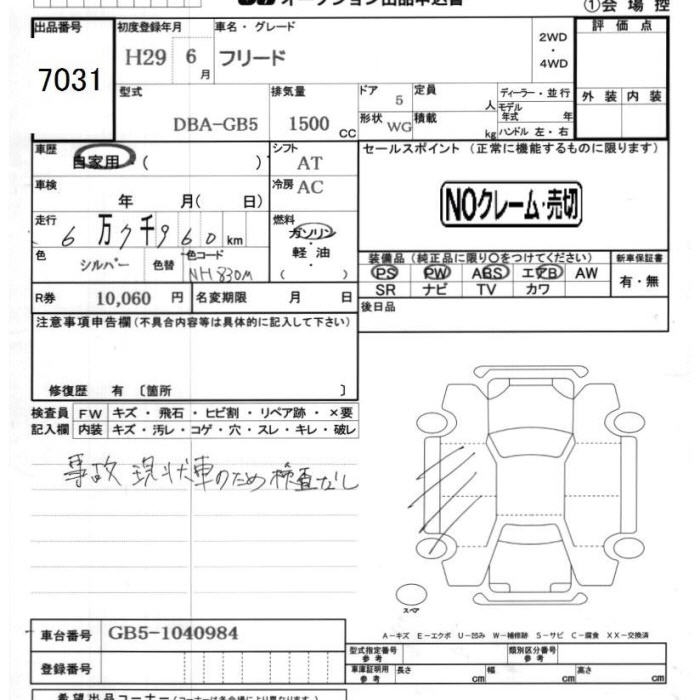 オークション出品申込書
①会 場 控
出品番号
7031
初度登録年月
H29 6 月
車名・グレード
フリード
2WD
・
4WD
評 価 点
外 装 内 装
型式
DBA-GB5
排気量
1500 CC
ドア 5
定員 人
形状 WG
積載 kg
ディーラー・並行
モデル年式 年
ハンドル 左・右
車歴
自家用・( )
シフト
AT
車検
年 月( 日)
冷房 AC
走行
6 万 7 千 9 6 0 km
燃料
ガソリン
軽 油
( )
色
シルバー
色替
色コード
NH830M
R券 10,060 円
名変期限 月 日
セールスポイント (正常に機能するものに限ります)
NOクレーム・売切
装備品(純正品に限り〇をつけてください)
PS PW ABS エアB AW
SR ナビ TV カワ
新車保証書
有・無
後日品
注意事項申告欄(不具合内容等は具体的に記入して下さい)
修復歴 有 〔箇所 〕
検査員
記入欄
FW キズ・飛石・ヒビ割・リペア跡・×要
内装 キズ・汚レ・コゲ・穴・スレ・キレ・破レ
事故 現状車のため 検査なし
スペア
A-キズ E-エクボ U-凹み W-補修跡 S-サビ C-腐食 XX-交換済
車台番号 GB5-1040984
登録番号
型式指定番号
参考
類別区分番号
参考
車庫証明用
参考
長さ cm
幅 cm
高さ cm
希望出品コーナー(コーナーは各会場により異なります)